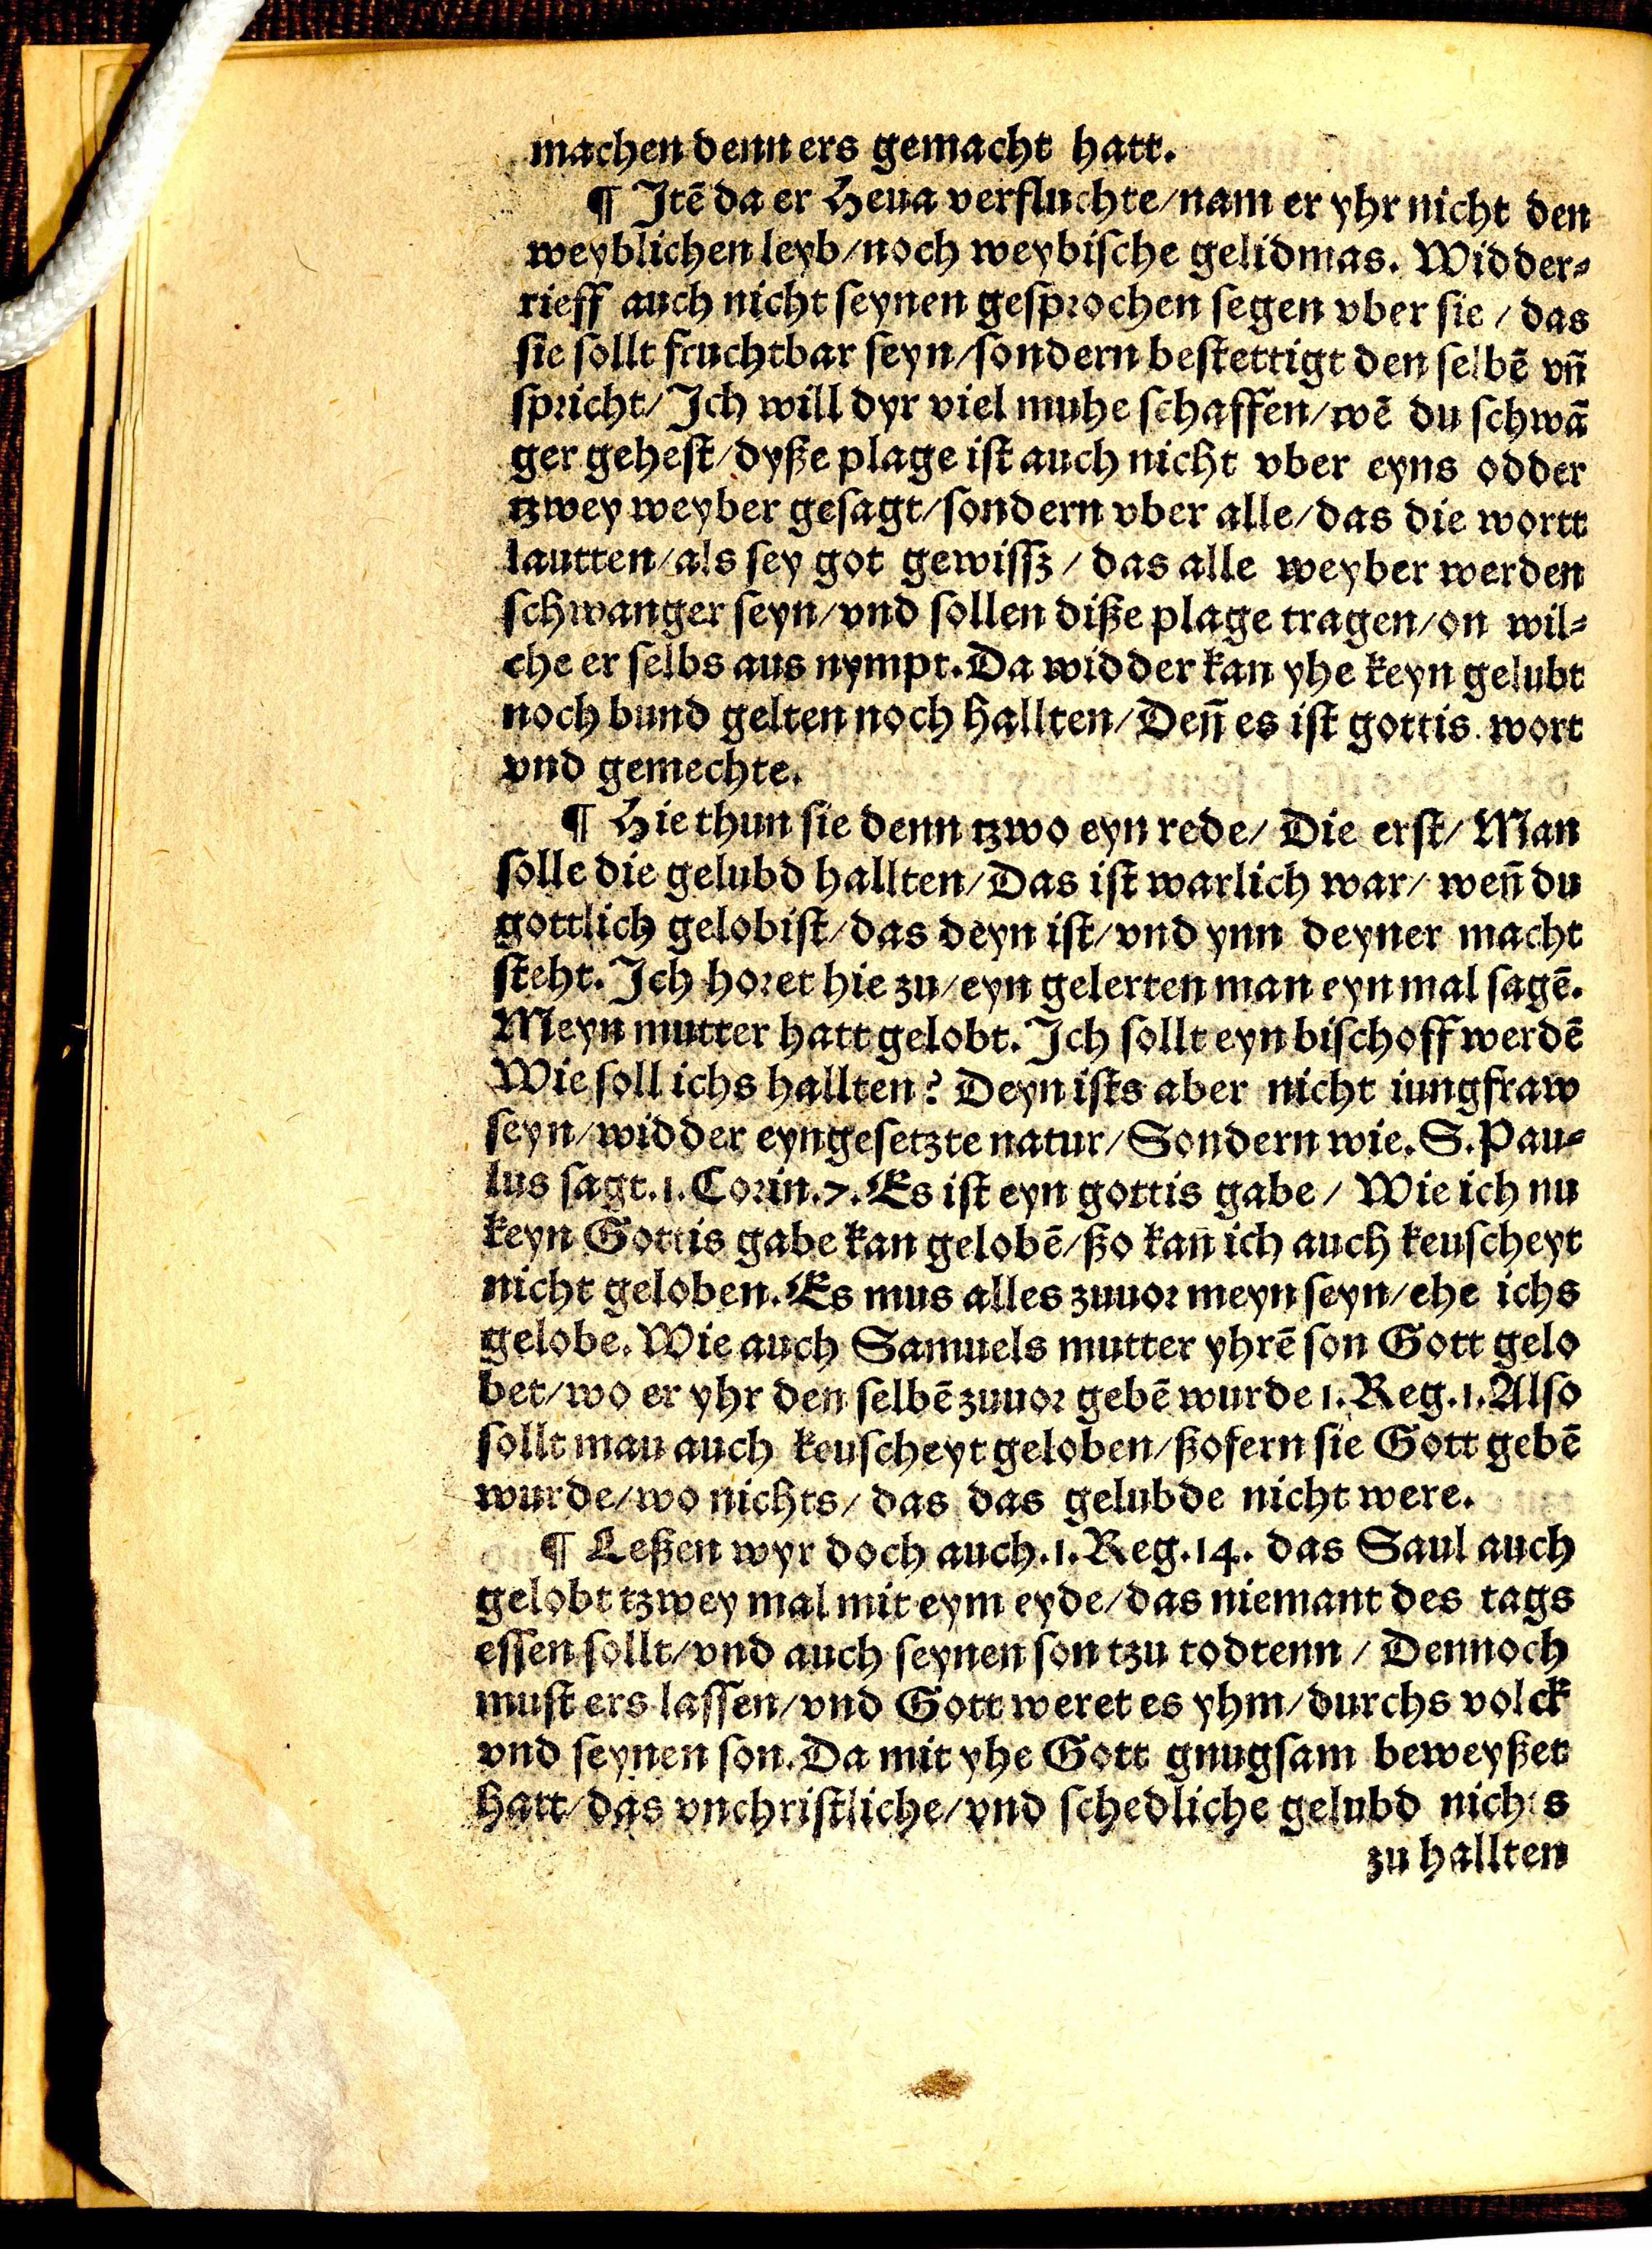 machen denn ers gemacht hatt.
¶ Jtẽ da er Heua verfluchte/nam er yhr nicht den
weyblichen leyb/noch weybiſche gelidmas. Widder⸗
rieff auch nicht ſeynen geſprochen ſegen vber ſie / das
ſie ſollt fruchtbar ſeyn/ſondern beſtettigt den ſelbẽ vn̄
ſpricht/Jch will dyr viel muhe ſchaffen/wẽ du ſchwā
ger geheſt/dyße plage iſt auch nicht vber eyns odder
tzwey weyber geſagt/ſondern vber alle/das die wortt
lautten/als ſey got gewiſſz / das alle weyber werden
ſchwanger ſeyn/vnd ſollen diße plage tragen/on wil⸗
che er ſelbs aus nympt.Da widder kan yhe keyn gelubt
noch bund gelten noch hallten/Den̄ es iſt gottis wort
vnd gemechte.
¶ Hie thun ſie denn tzwo eyn rede/ Die erſt/ Man
ſolle die gelubd hallten/Das iſt warlich war/ wen̄ du
gottlich gelobiſt/das deyn iſt/vnd ynn deyner macht
ſteht. Jch horet hie zu/eyn gelerten man eyn mal ſagẽ.
Meyn mutter hatt gelobt. Jch ſollt eyn biſchoff werdẽ
Wie ſoll ichs hallten? Deyn iſts aber nicht iungfraw
ſeyn/widder eyngeſetzte natur/Sondern wie.S.Pau⸗
lus ſagt.1.Corin.7.Es iſt eyn gottis gabe / Wie ich nu
keyn Gottis gabe kan gelobẽ/ßo kan̄ ich auch keuſcheyt
nicht geloben.Es mus alles zuuor meyn ſeyn/ehe ichs
gelobe. Wie auch Samuels mutter yhrẽ ſon Gott gelo
bet/wo er yhr den ſelbẽ zuuor gebẽ wurde 1.Reg.1.Alſo
ſollt mau auch keuſcheyt geloben/ßofern ſie Gott gebẽ
wurde/wo nichts/ das das gelubde nicht were.
¶ Leßen wyr doch auch.1.Reg.14. das Saul auch
gelobt tzwey mal mit eym eyde/das niemant des tags
eſſen ſollt/vnd auch ſeynen ſon tzu todtenn / Dennoch
muſt ers laſſen/vnd Gott weret es yhm/durchs volck
vnd ſeynen ſon.Da mit yhe Gott gnugſam beweyßet
hatt/das vnchriſtliche/vnd ſchedliche gelubd nichts
zu hallten